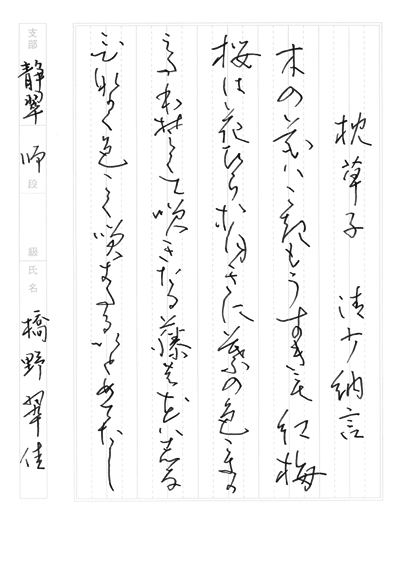 枕草子 清少納言
木の花はこきもうすきも紅梅
桜は花びらおほきに葉の色こきが
枝ほそくて咲きたる藤の花はしなひ
ながく色こく咲きたるいとめでたし
支部 静翠
師 段
級
氏名 橋野翠佳